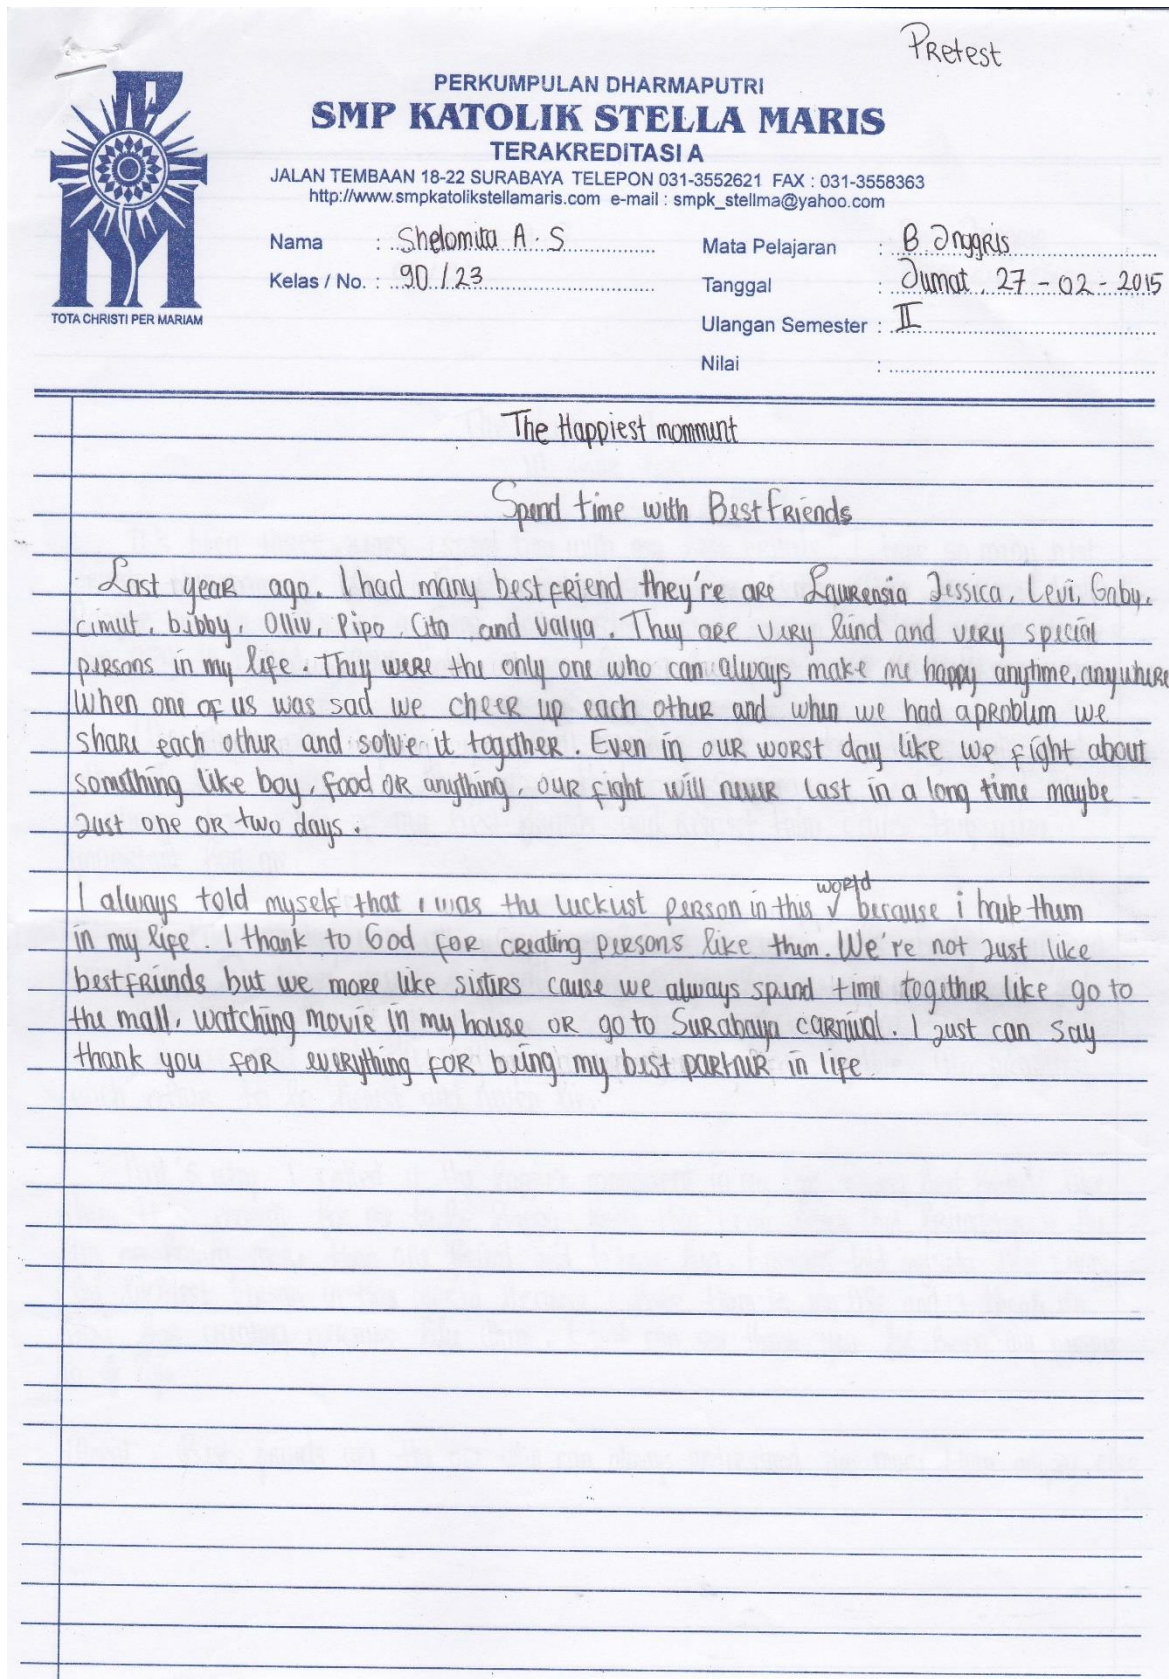 Pretest
PERKUMPULAN DHARMAPUTRI
SMP KATOLIK STELLA MARIS
TERAKREDITASI A
JALAN TEMBAAN 18-22 SURABAYA TELEPON 031-3552621 FAX : 031-3558363
http://www.smpkatolikstellamaris.com e-mail : smpk_stellma@yahoo.com
TOTA CHRISTI PER MARIAM
Nama : Shelomita A. S
Kelas / No. : 9D / 23
Mata Pelajaran : B. Inggris
Tanggal : Jumat, 27 - 02 - 2015
Ulangan Semester : II
Nilai :
The Happiest momment
Spend time with Best Friends
Last year ago. I had many bestfriend they're are Laurensia Jessica, Levi, Gaby,
Cimut, bibby, Olliv, Pipo, Cita and Valya. They are very kind and very special
persons in my life. They were the only one who can always make me happy anytime, anywhere
When one of us was sad we cheer up each other and when we had a problem we
share each other and solve it together. Even in our worst day like we fight about
something like boy, food or anything, our fight will never last in a long time maybe
Just one or two days.
I always told myself that i was the luckiest person in this world because i have them
in my life. I thank to God for creating persons like them. We're not Just like
bestfriends but we more like sisters cause we always spend time together like go to
the mall, watching movie in my house or go to Surabaya carnival. I Just can say
thank you for everything for being my best partner in life